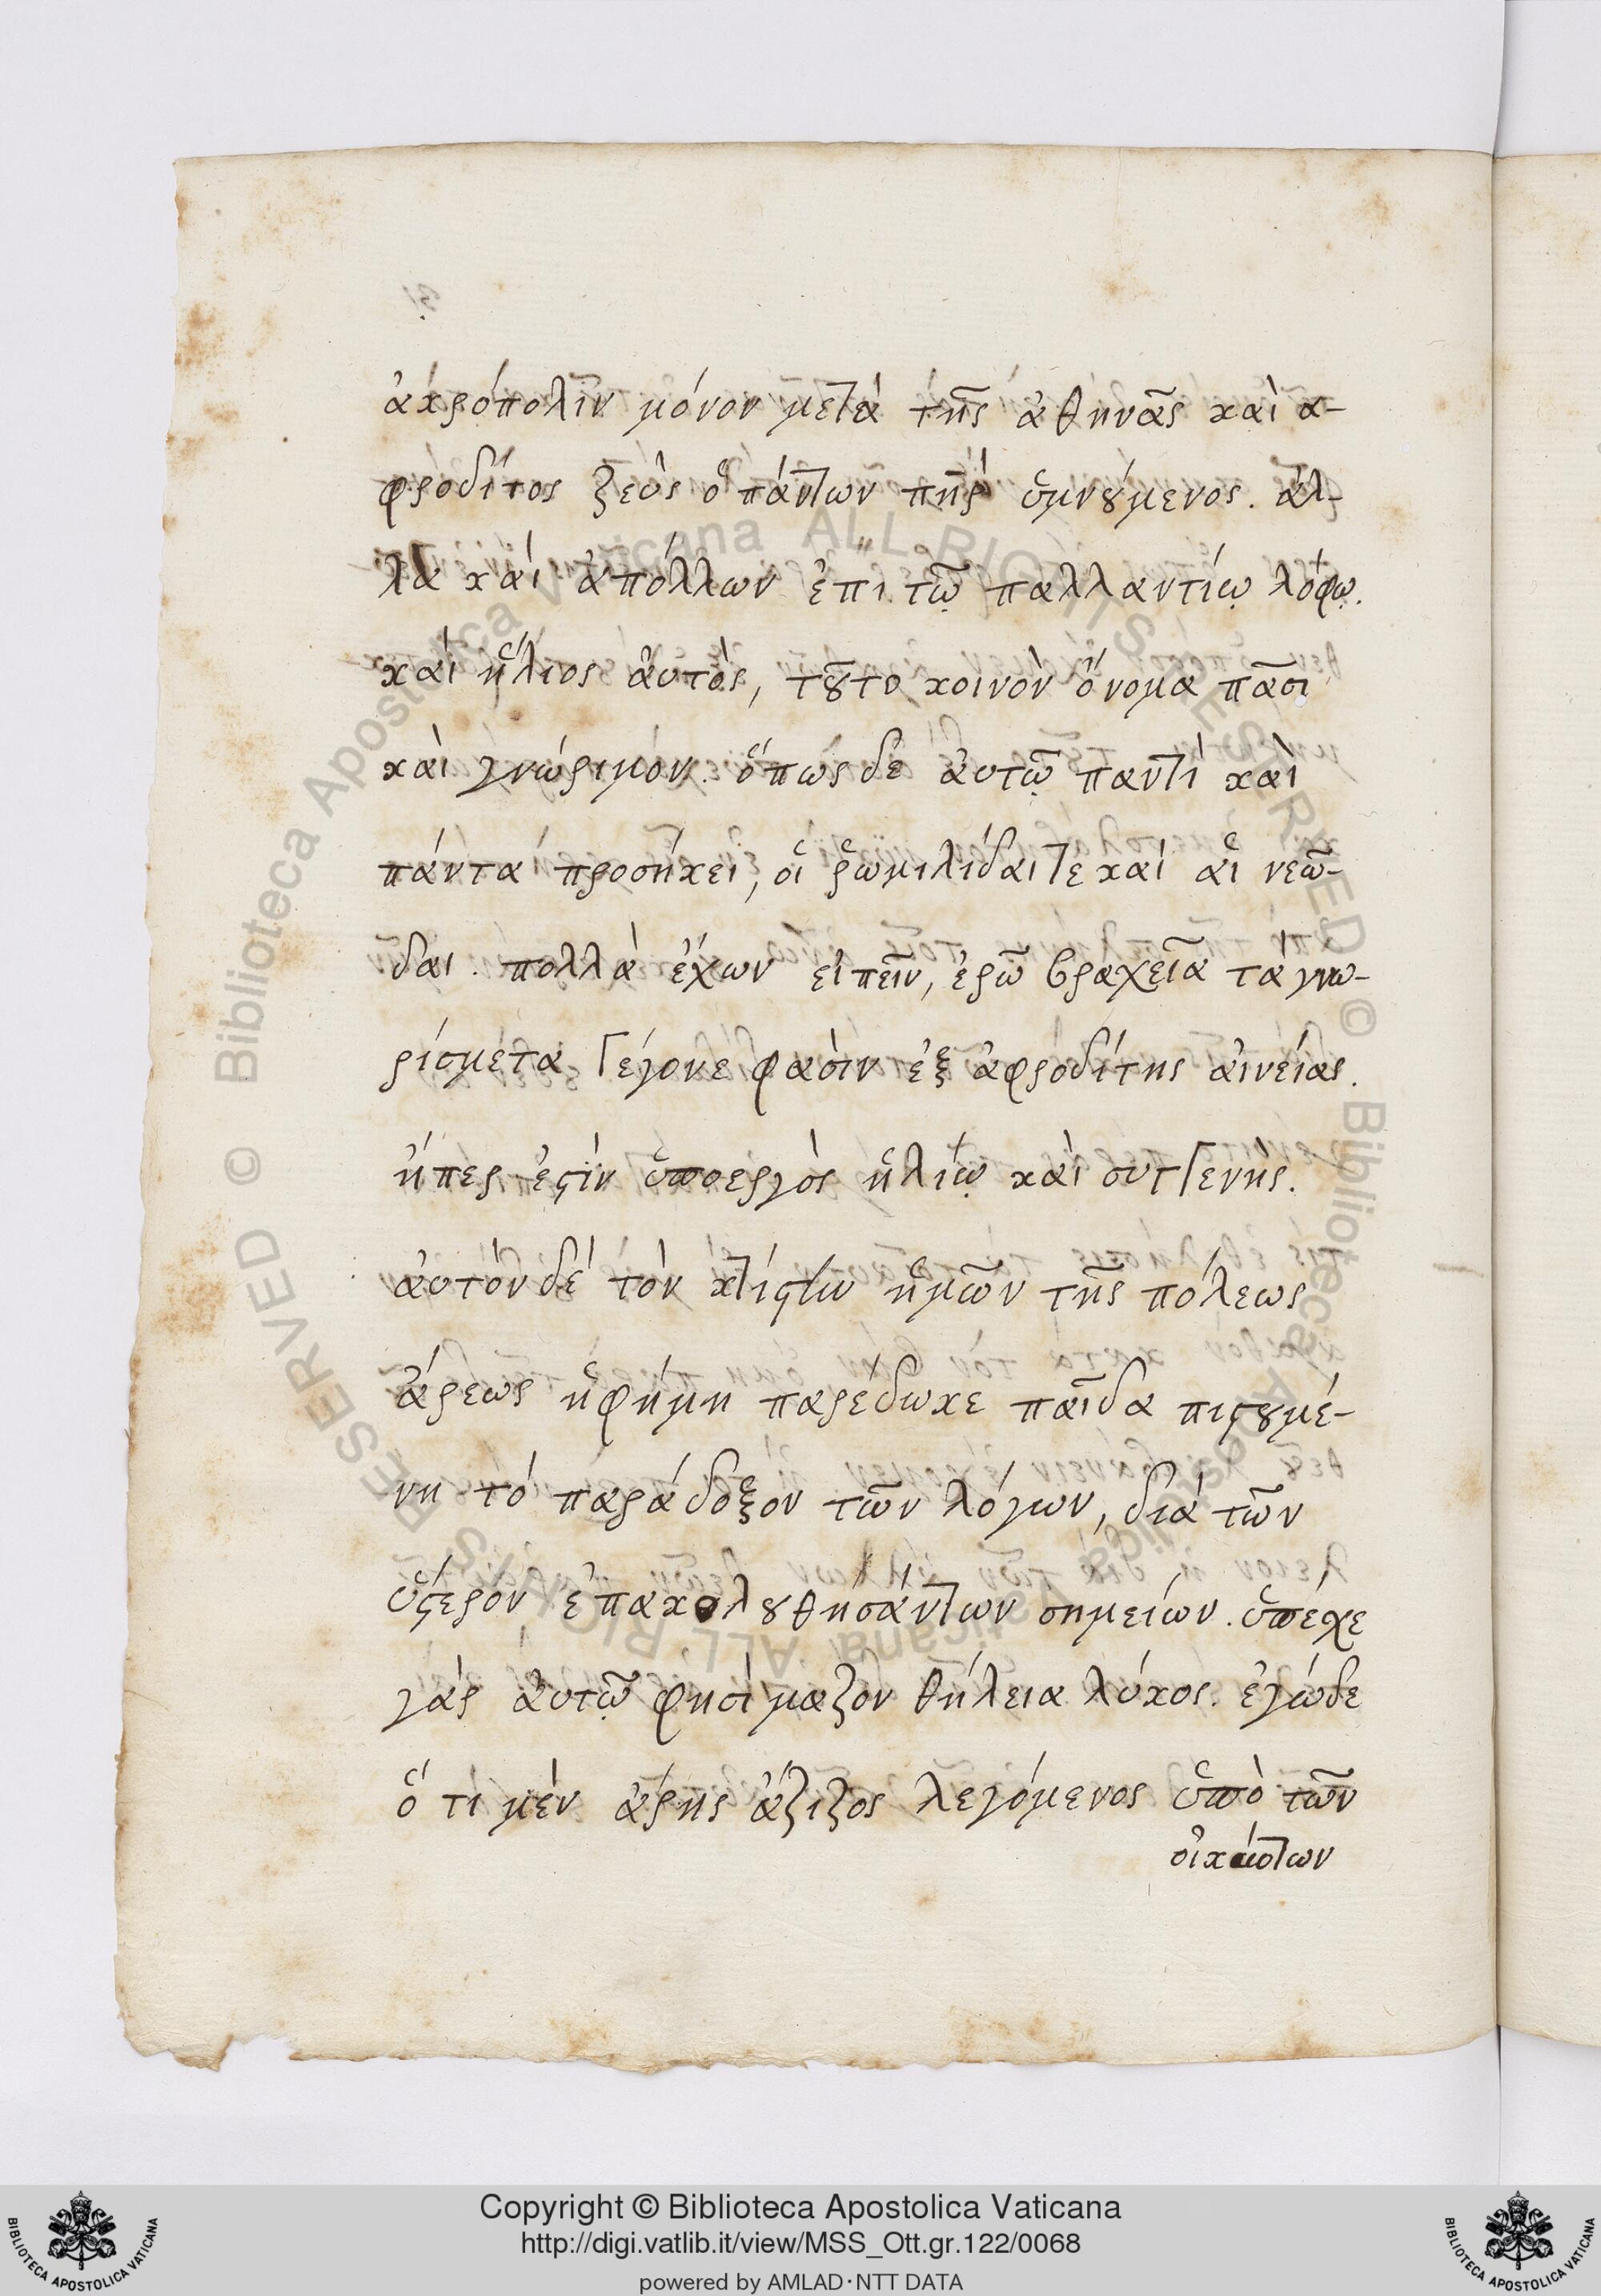 ἀκρόπολιν μόνον μετὰ τῆς ἀθηνᾶς καὶ α-
φροδίτος ζεὺς ὁ πάντων πηρ ὑμνούμενος. ἀλ-
λὰ καὶ ἀπόλλων ἐπι τῷ παλλαντίῳ λόφῳ.
καὶ ἥλιος ἀυτὸς, τοῦτο κοινὸν ὄνομα πᾶσι
καὶ γνώριμον. ὅπως δε ἀυτῷ παντὶ καὶ
πάντα προσήκει, οἱ ῥωμιλίδαι τε καὶ αἱ νεῶ-
δαι. πολλὰ ἔχων εἰπεῖν, ἐρῶ βραχεῖα τὰ γνω-
ρίσμετα. Γέγονε φασὶν ἐξ ἀφροδίτης ἀινείας.
ἥπερ ἐστὶν ὑποεργὸς ἡλίῳ καὶ συγγενής.
ἀυτὸν δὲ τὸν κτίστην ἡμῶν τῆς πόλεως
ἄρεως ἡ φήμη παρέδωκε παῖδα πιστουμέ-
νη τὸ παράδοξον τῶν λόγων, διὰ τῶν
ὕστερον ἐπακολουθησάντων σημείων. ὑπέχε
γὰρ ἀυτῷ φησὶ μαζὸν θήλεια λύκος. ἐγὼ δε
ὅτι μὲν ἄρης ἄζιζος λεγόμενος ὑπὸ τῶν
Copyright © Biblioteca Apostolica Vaticana
http://digi.vatlib.it/view/MSS_Ott.gr.122/0068
powered by AMLAD·NTT DATA